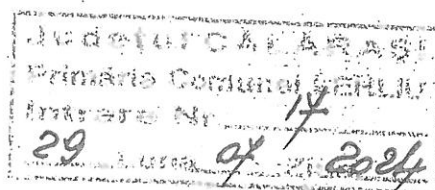 Judetul CĂLĂRAȘI
Primăria Comunei
Intrare Nr. 17
29 Luna 07 2024